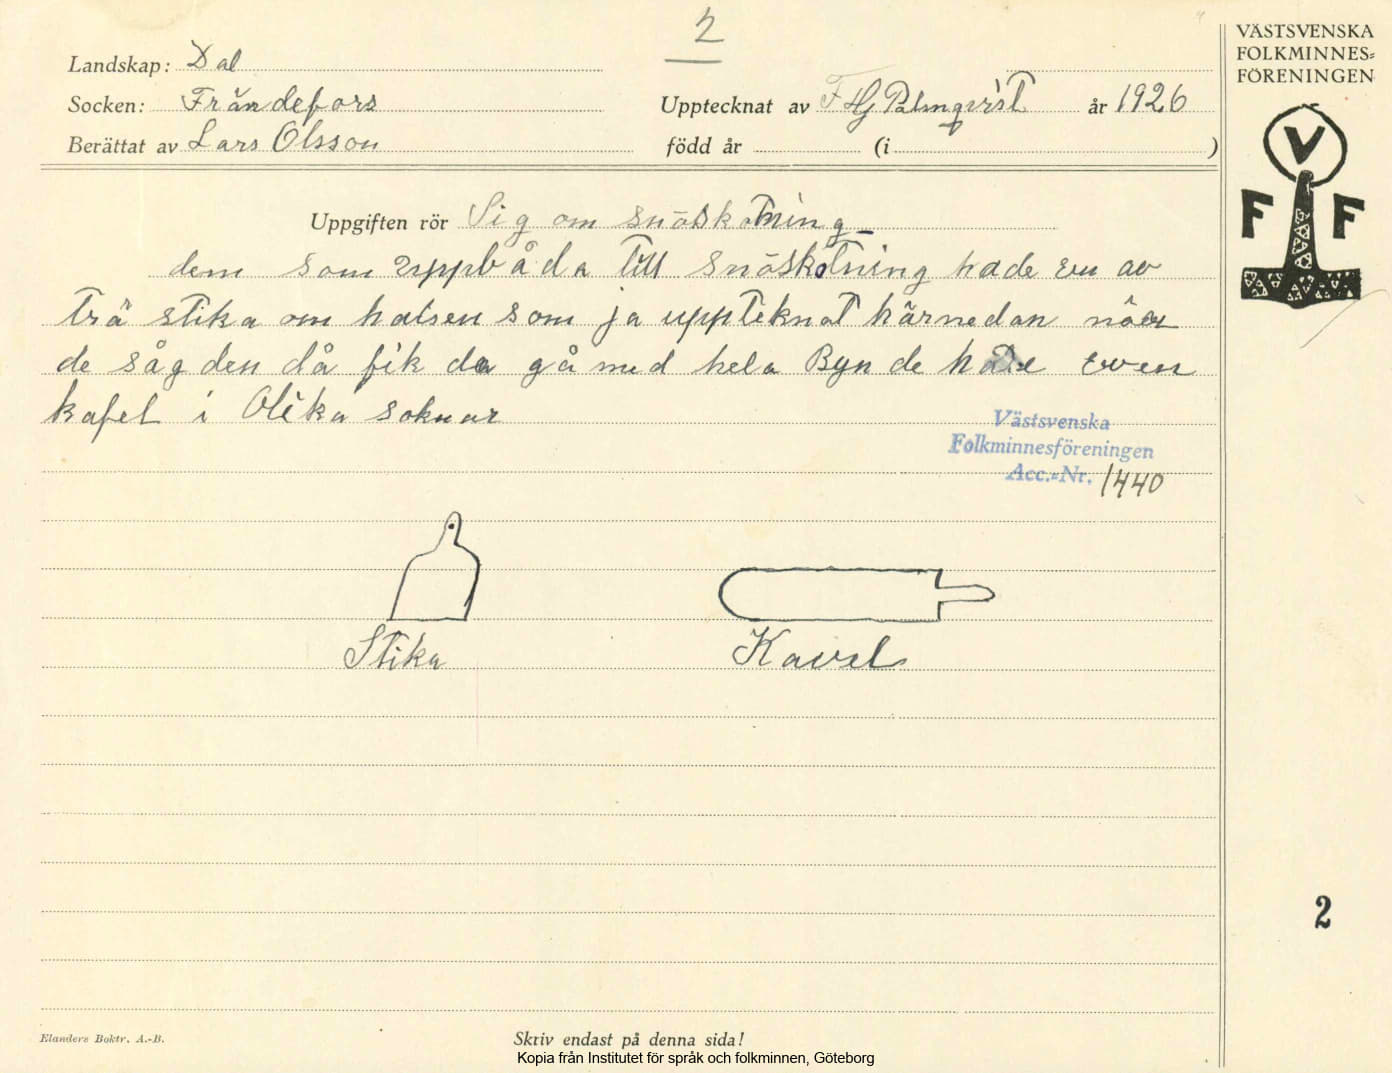 2
VÄSTSVENSKA
FOLKMINNES=
FÖRENINGEN
V
F F
Landskap: Dal
Socken: Frändefors
Upptecknat av F Hj Palmqvist år 1926
Berättat av Lars Olsson
född år (i )
Uppgiften rör Sig om snöskotning
dem som uppbåda till snöskotning hade en av
trä stika om halsen som ja uppteknat härnedan når
de såg den då fik da gå med hela Byn de hade even
kafel i Olika soknar
Västsvenska
Folkminnesföreningen
Acc.=Nr. 1440
Stika
Kavel
2
Elanders Boktr. A.-B.
Skriv endast på denna sida!
Kopia från Institutet för språk och folkminnen, Göteborg